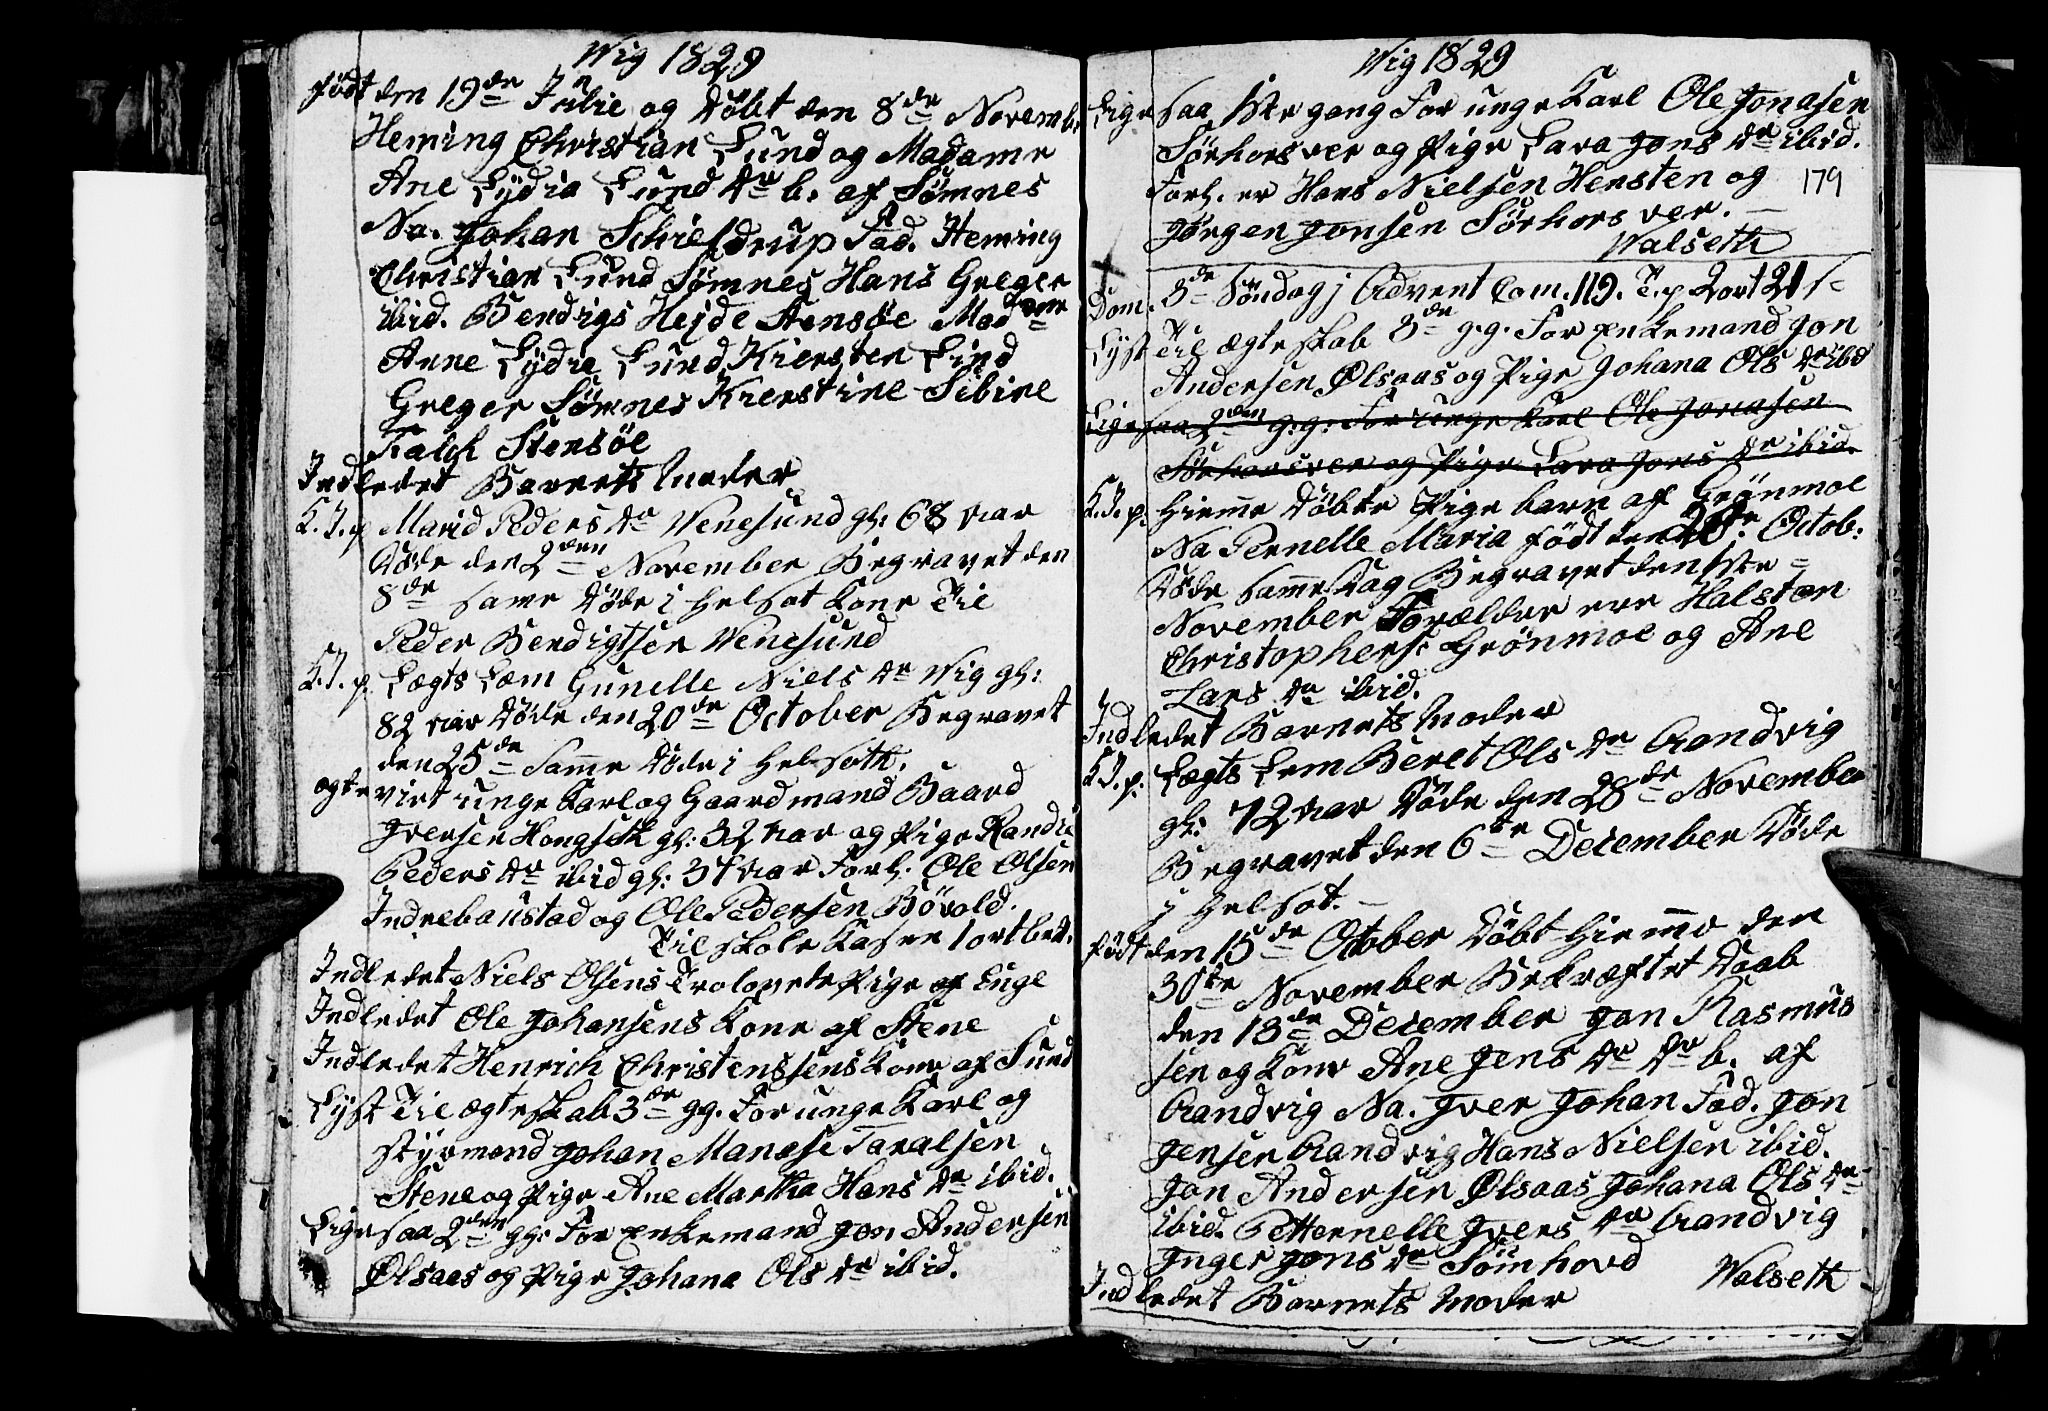 Wig 1829
født den 19de Julie og Døbt den 8de Novembr
Heming Christian Lund og Madame
Ane Lydia Lund Dr b. af Sømnes
Na. Johan Schieldrup Fad. Heming
Christian Lund Sømnes Hans Greger
ibid. Bendigs Hejde Stensøe Madme
Anne Lydie Lund Kiersten Lind
Greger Sømnes Kierstine Sibine
Falch Stensøe
Indledet Barnets Moder
K. J. p. Marid Peders Dr Venesund gl: 68 aar
Døde den 2den November Begravet den
8de same Døde i Helsot Kone Til
Peder Bendigtsen Venesund
K. J. p. Lægts Lem Gunelle Niels Dr Wig gl:
82 aar Døde den 20de October Begravet
den 25de Samme Døde i Helsoth.
Ægteviet unge Karl og Gaardmand Baard
Iversen Hongseth gl: 32 aar og Pige Randie
Peders Dr ibid gl: 34 aar Forl. Ole Olsen
Indrebaustad og Ole Pedersen Bøvold.
Til skole Kasen 1 ort bet.
Indledet Niels Olsens Trolovete Pige af Enge
Indledet Ole Johansens Kone af Stene
Indledet Henrich Christenssens Kone af Sund
Lyst Til ægteskab 3de gg. For unge Karl og
styrmand Johan Manase Taralsen
Stene og Pige Ane Martha Hans Dr ibid.
Ligesaa 2den gg: For Enkemand Jon Andersen
Ølsaas og Pige Johana Ols Dr ibid.
Wig 1829
Ligesaa 1ste gang For unge Karl Ole Jonasen
Sørhorsver og Pige Lava Jons Dr ibid.
Forl. er Hans Nielsen Hensten og
179
Jørgen Jonsen Sørhorsver.
Walseth
Dom. 3de Søndag j Advent Com. 119. T. p 2 ort 21 s
Lyst Til ægteskab 3de g.g. For Enkemand Jon
Andersen Ølsaas og Pige Johana Ols Dr ibd
Ligesaa 2den g:g: For unge Karl Ole Jonasen
Sørhorsver og Pige Lava Jons Dr ibid.
K. J. p. Hieme Døbte Pige barn af Grønmoe
Na Pernelle Maria født den 28de Octob:
Døde same Dag Begravet den 1ste
November Forælder ere Halsten
Christophers: Grønmoe og Ane
Lars Dr ibid.
Indledet Barnets Moder
K. J. p. Lægts Lem Beret Ols Dr Brandvig
gl: 72 aar Døde den 28de November
Begravet den 6te December Døde
j Helsot.
født den 15de Octber Døbt Hieme den
30te November Bekræftet Daab
den 13de December Jon Rasmus
sen og Kone Ane Jens Dr Dr b. af
Brandvig Na. Iver Johan Fad. Jon
Jensen Brandvig Hans Nielsen ibid.
Jon Andersen Ølsaas Johana Ols Dr
ibid. Petternelle Ivers Dr Brandvig
Inger Jons Dr Sømhovd
Walseth
Indledet Barnets Moder